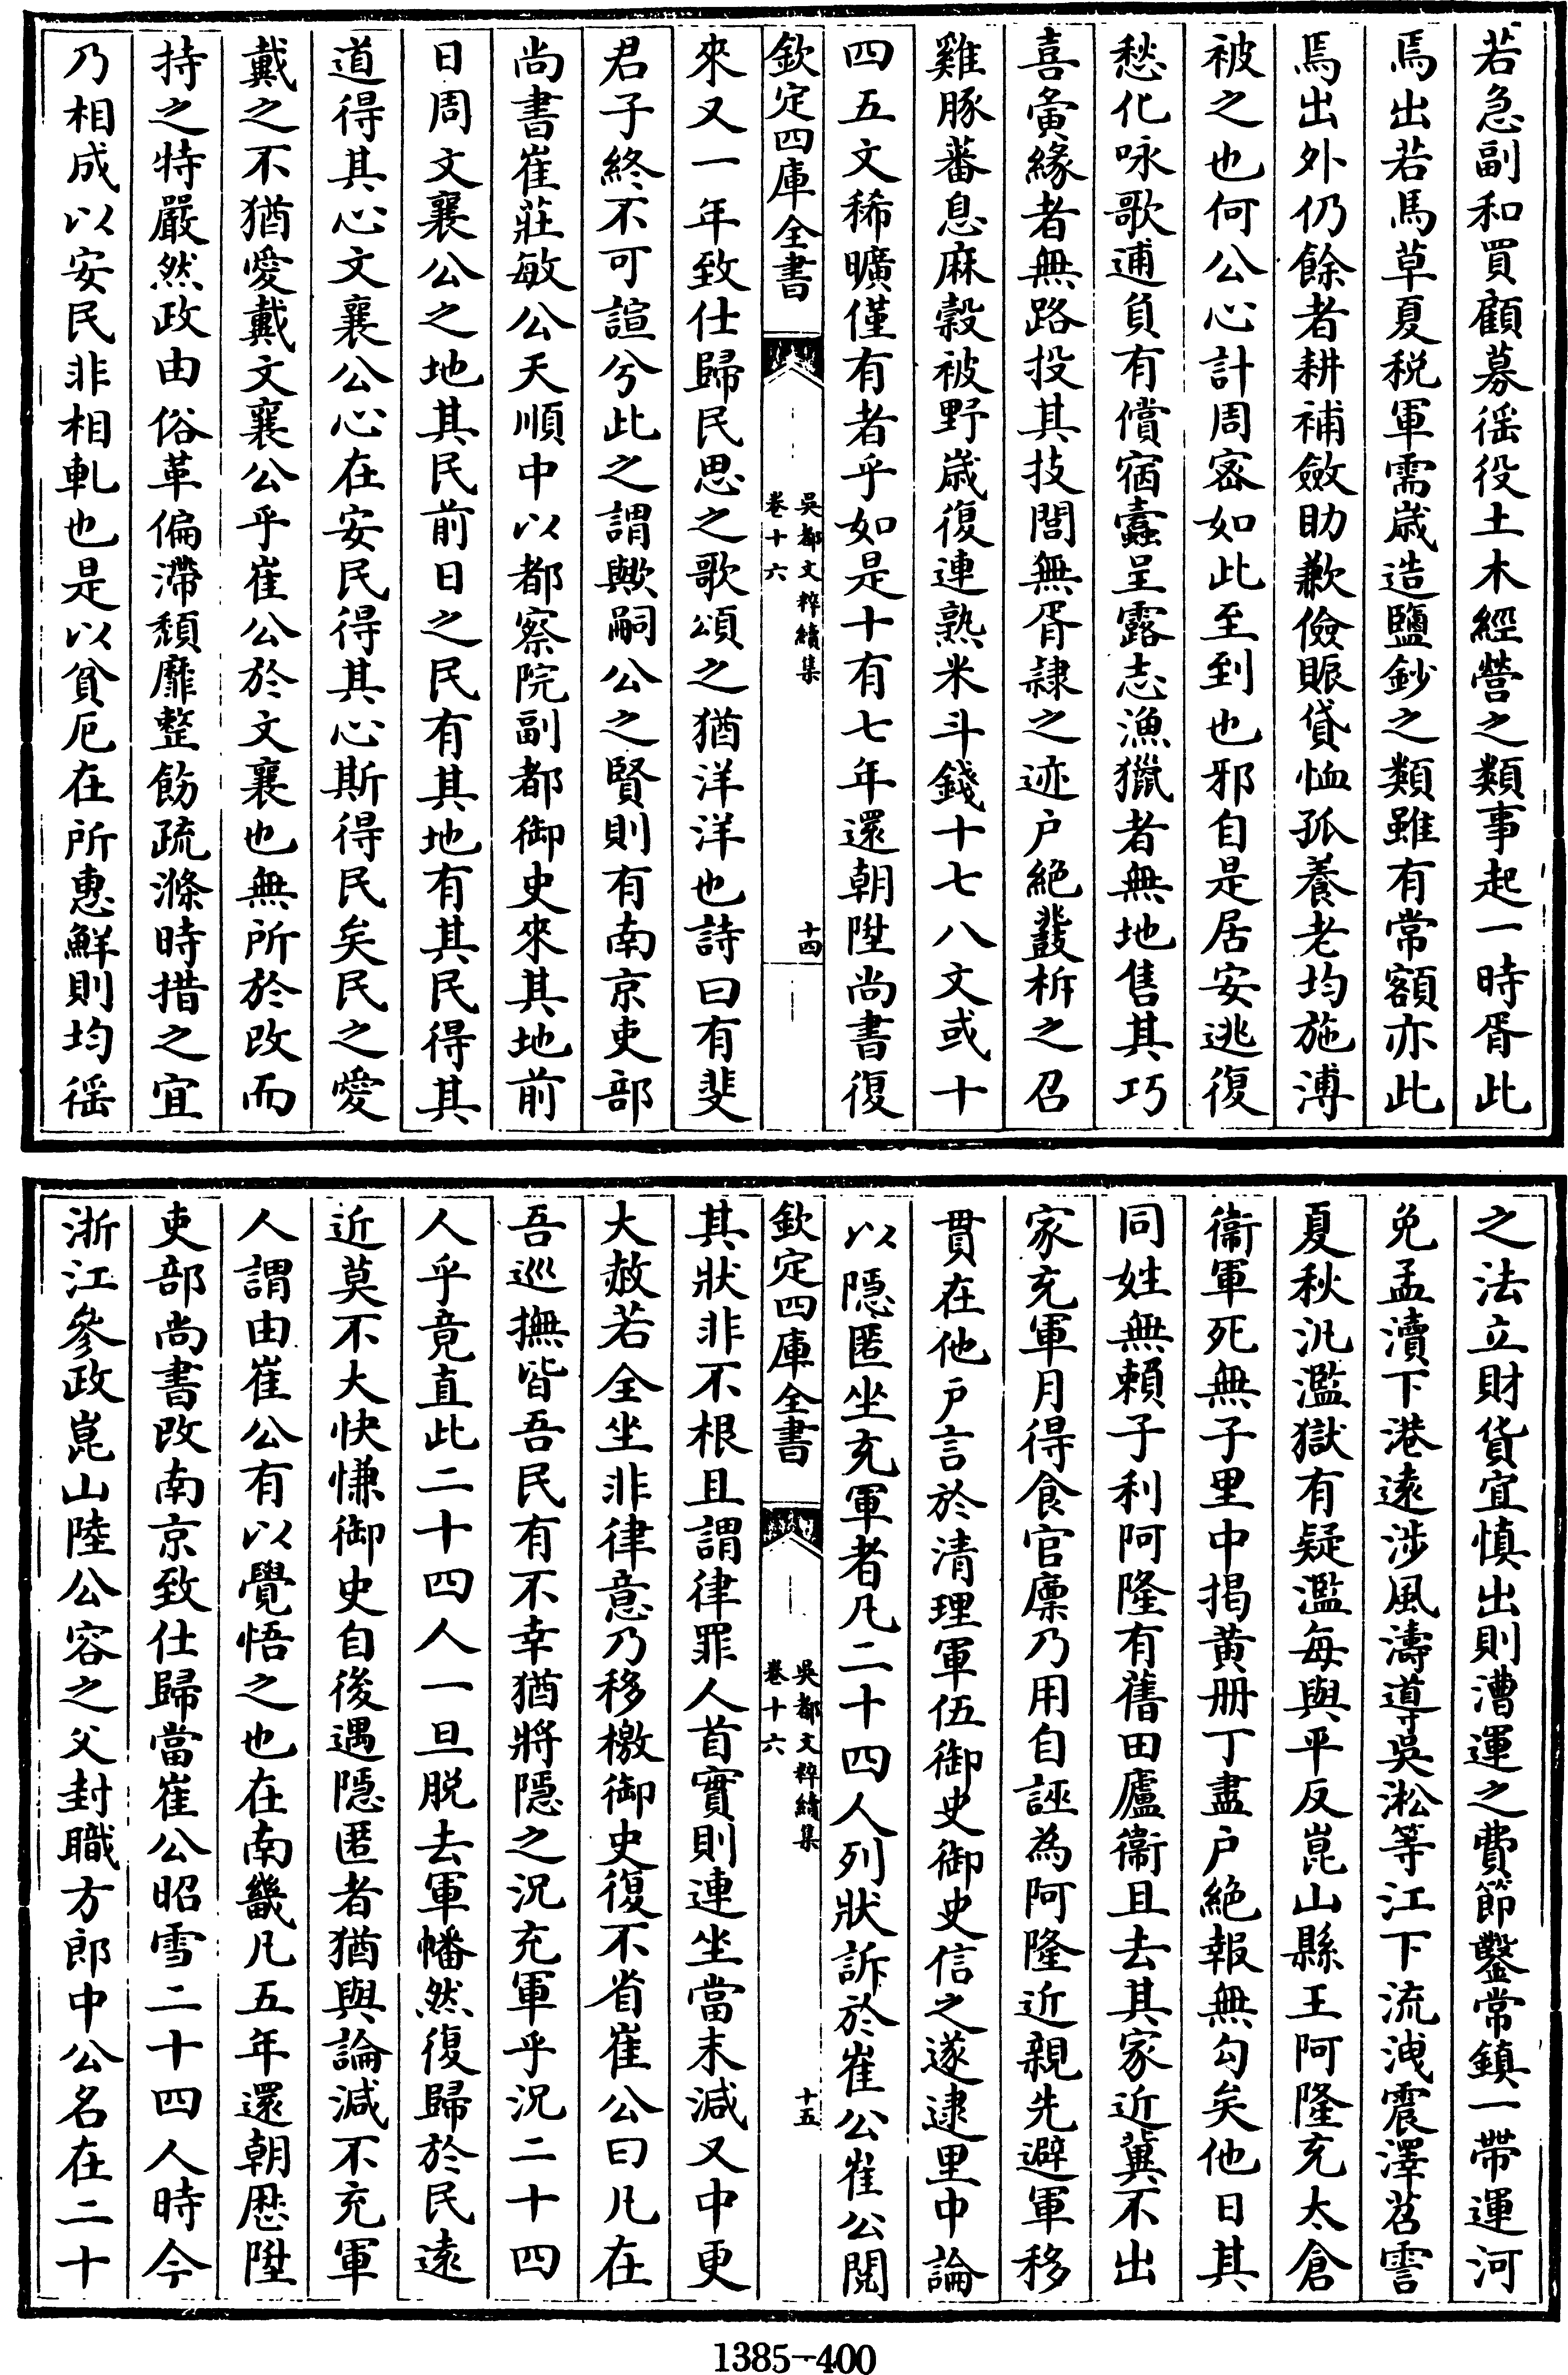 若急副和買顧募徭役土木經營之類事起一時胥此
焉出若馬草夏税軍需歲造鹽鈔之類雖有常額亦此
焉出外仍餘者耕補斂助歉儉賑貸恤孤養老均施溥
被之也何公心計周宻如此至到也邪自是居安逃復
愁化咏歌逋負有償宿蠧呈露志漁獵者無地售其巧
喜夤緣者無路投其技閭無胥隷之迹户絶鼗柝之召
雞豚蕃息麻穀被野歲復連熟米斗錢十七八文或十
四五文稀曠僅有者乎如是十有七年還朝陞尚書復
欽定四庫全書
吳都文粹續集
卷十六
十四
來又一年致仕歸民思之歌頌之猶洋洋也詩曰有斐
君子終不可諠兮此之謂歟嗣公之賢則有南京吏部
尚書崔莊敏公天順中以都察院副都御史來其地前
日周文襄公之地其民前日之民有其地有其民得其
道得其心文襄公心在安民得其心斯得民矣民之愛
戴之不猶愛戴文襄公乎崔公於文襄也無所於改而
持之特嚴然政由俗革偏滯頽靡整飭疏滌時措之宜
乃相成以安民非相軋也是以貧厄在所惠鮮則均徭
之法立財貨宜慎出則漕運之費節鑿常鎮一帶運河
免孟瀆下港遠涉風濤導吳淞等江下流洩震澤苕霅
夏秋汎濫獄有疑濫每與平反崑山縣王阿隆充太倉
衞軍死無子里中揭黄册丁盡户絶報無勾矣他日其
同姓無賴子利阿隆有舊田廬衞且去其家近冀不出
家充軍月得食官廪乃用自誣為阿隆近親先避軍移
貫在他户言於清理軍伍御史御史信之遂逮里中論
以隠匿坐充軍者凡二十四人列狀訴於崔公崔公閲
欽定四庫全書
吳都文粹續集
卷十六
十五
其狀非不根且謂律罪人首實則連坐當末減又中更
大赦若全坐非律意乃移檄御史復不省崔公曰凡在
吾巡撫皆吾民有不幸猶將隠之況充軍乎況二十四
人乎竟直此二十四人一旦脱去軍幡然復歸於民遠
近莫不大快慊御史自後遇隠匿者猶與論減不充軍
人謂由崔公有以覺悟之也在南畿凡五年還朝歴陞
吏部尚書改南京致仕歸當崔公昭雪二十四人時今
浙江參政崑山陸公容之父封職方郎中公名在二十
1385—400